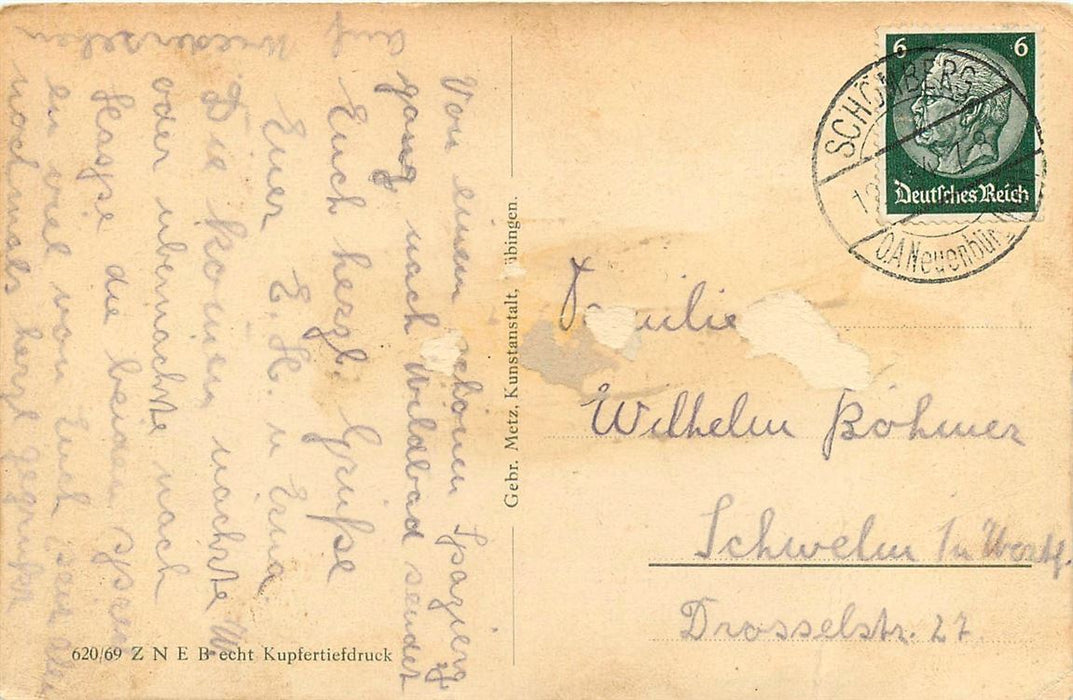 Von einen schönen Spazierg
gang nach Wildbad sendet
Euch herzl. Grüße
Euer E. H. u Erna.
Die kommen nächste W
oder übernächste nach
Haspe die beiden
en viel von Euch
nochmals herzl gegrüßt
auf
wiedersehen
Gebr. Metz, Kunstanstalt, übingen.
620/69 Z N E B echt Kupfertiefdruck
6 6
Deutsches Reich
SCHÖMBERG
O.A.Neuenbürg
Familie
Wilhelm Böhmer
Schwelm i/n Westf.
Drosselstr. 27.